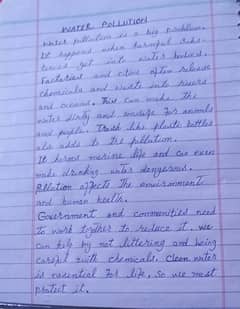 WATER POLLUTION
Water pollution is a big problem.
It happens when harmful subs-
tances get into water bodies.
Factories and cities often release
chemicals and waste into rivers
and oceans. This can make the
water dirty and unsafe for animals
and people. Trash like plastic bottles
also adds to the pollution.
It harms marine life and can even
make drinking water dangerous.
Pollution affects the environment
and human health.
Government and communities need
to work together to reduce it. We
can help by not littering and being
careful with chemicals. Clean water
is essential for life, so we must
protect it.